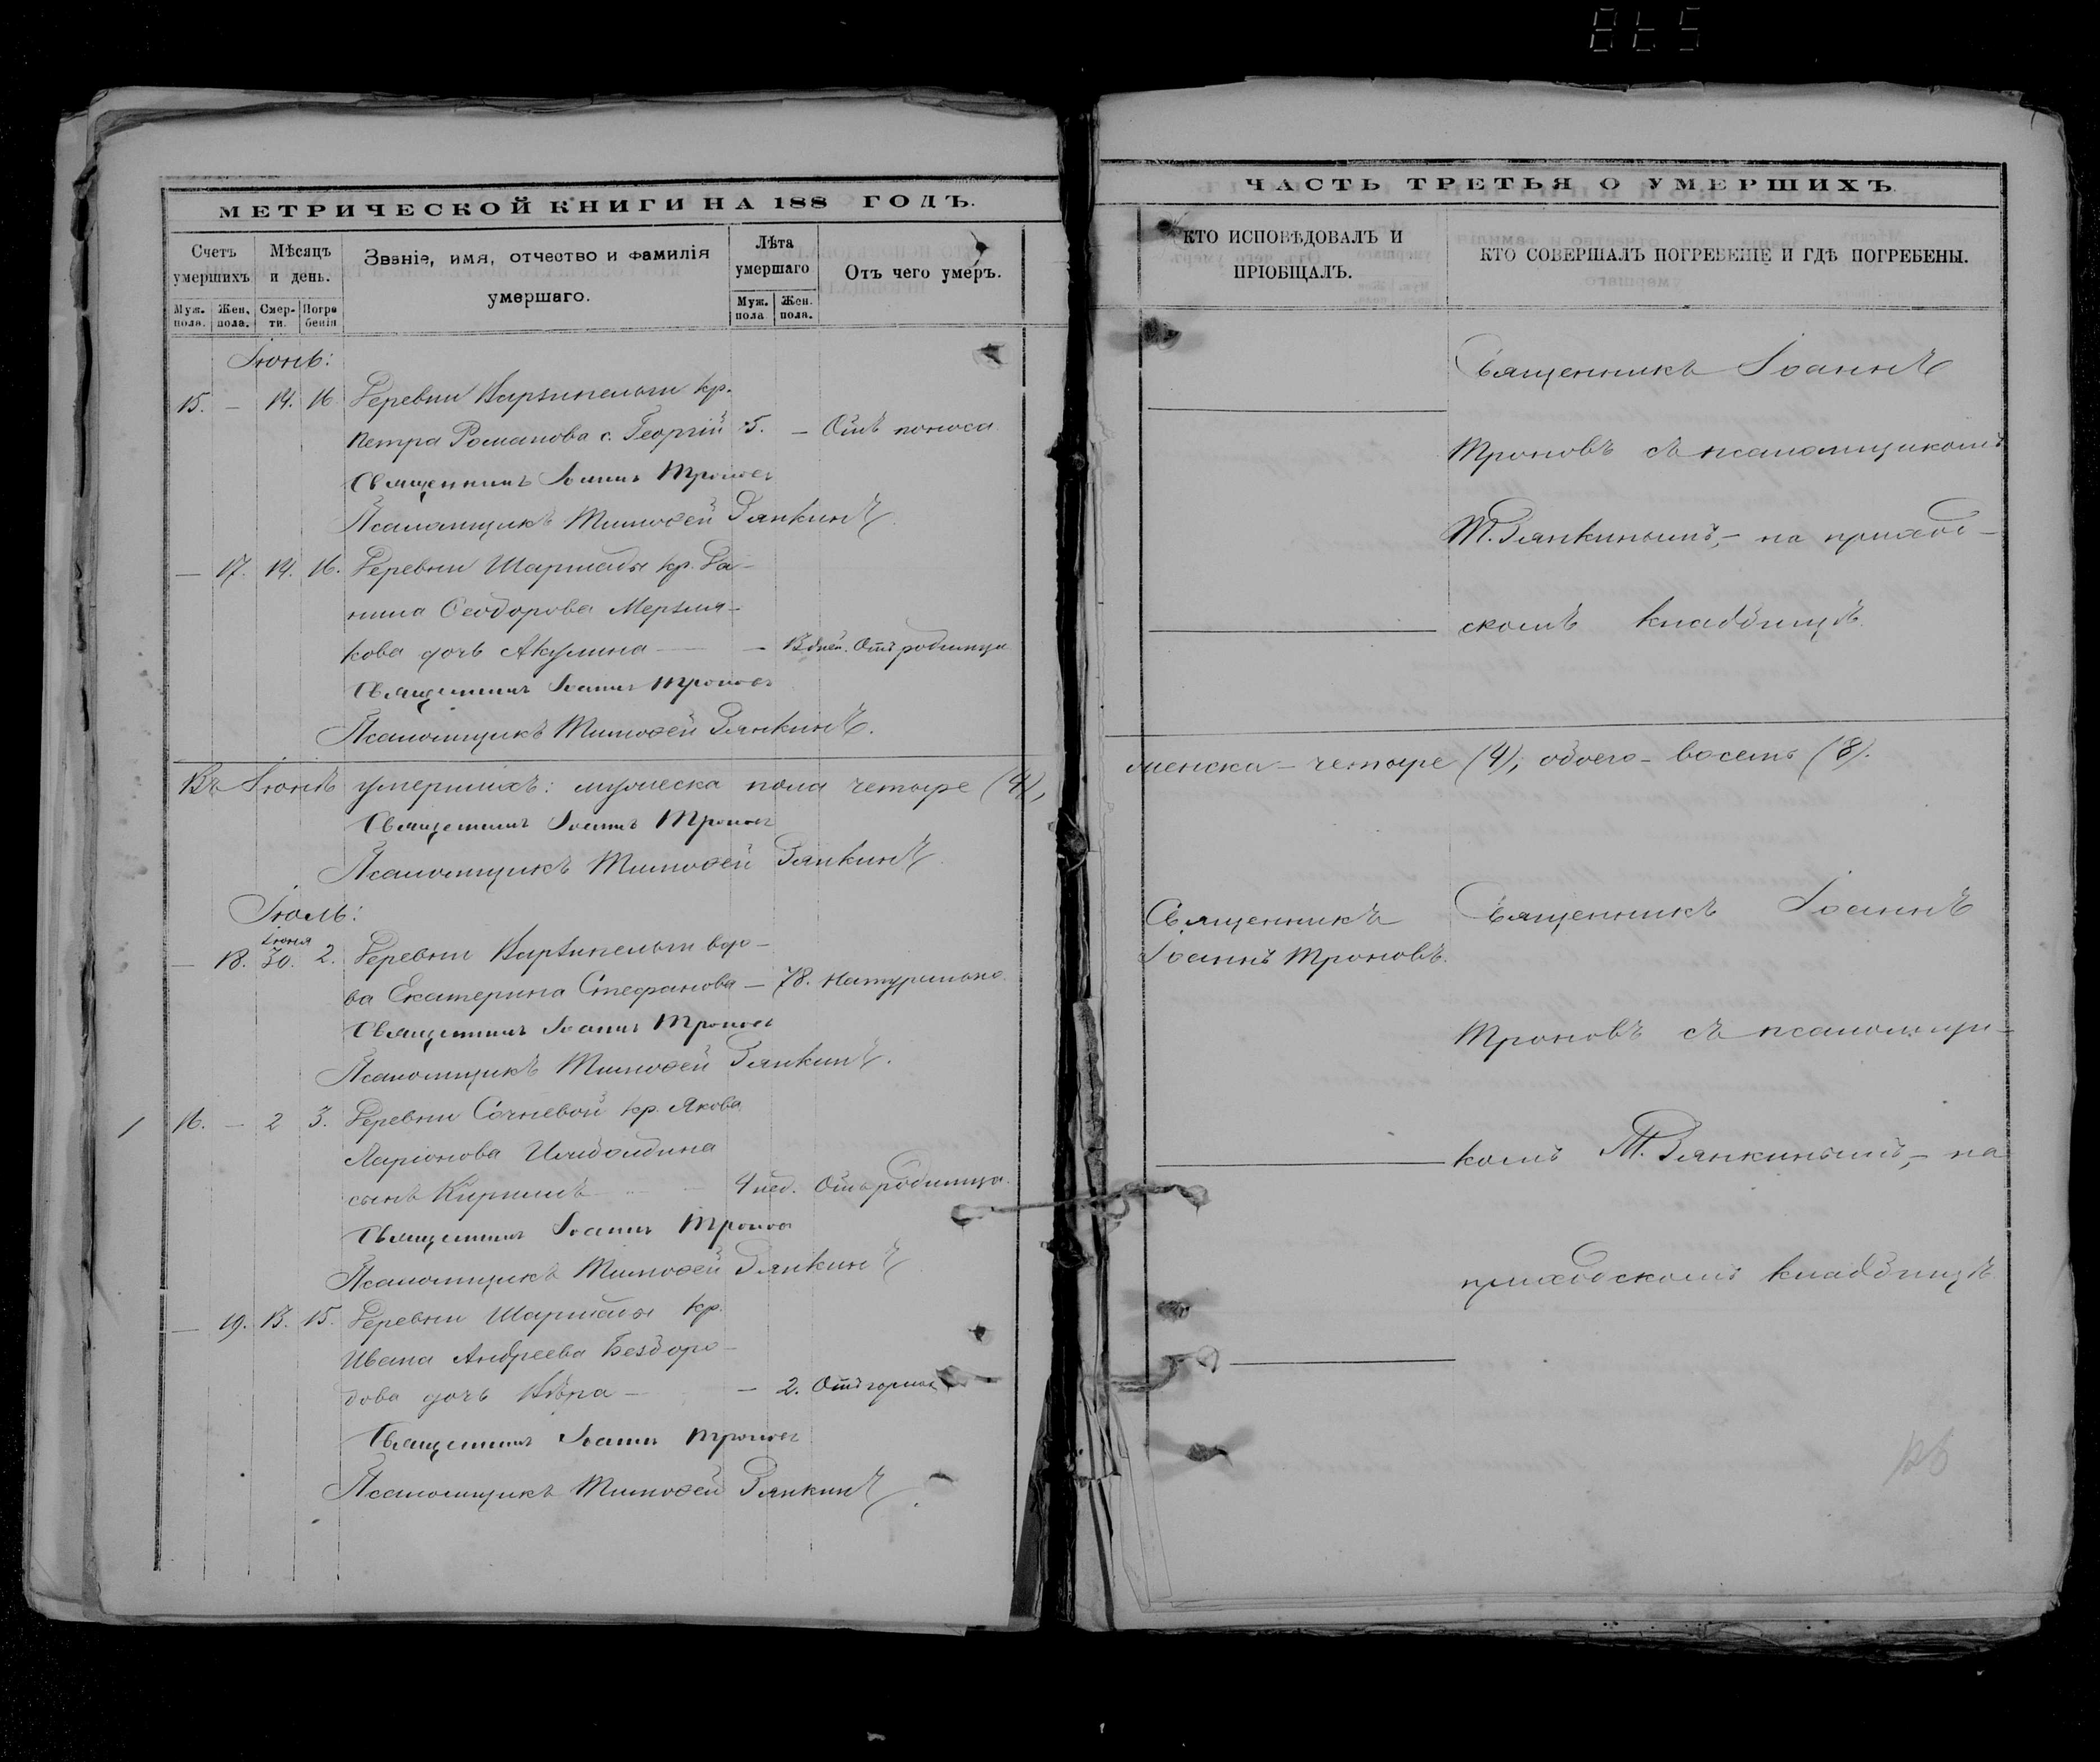 865
МЕТРИЧЕСКОЙ КНИГИ НА 188 ГОДЪ.
Счетъ умершихъ.
Муж. пола.
Жен. пола.
Мѣсяцъ и день.
Смер-ти.
Погре бенія
Званіе, имя, отчество и фамилія
умершаго.
Лѣта умершаго
Муж. пола
Жен. пола.
Отъ чего умеръ.
Іюнь:
15. — 14. 16. Деревни Варзипельги кр.
Петра Романова с. Георгій 5. — Отъ поноса.
Священникъ Іоаннъ Троновъ
Псаломщикъ Тимоѳей Зянкинъ
— 17. 14. 16. Деревни Шаршады кр. Да-
нила Ѳеодорова Мерзля-
кова дочь Акулина — — дней. Отъ родимца
Священникъ Іоаннъ Троновъ
Псаломщикъ Тимоѳей Зянкинъ.
Въ Іюнѣ умершихъ: мужеска пола четыре (4),
Священникъ Іоаннъ Троновъ
Псаломщикъ Тимоѳей Зянкинъ
Іюль:
Іюня
— 18. 30. 2. Деревни Варзипельги вдо-
ва Екатерина Стефанова — 78. Натурально.
Священникъ Іоаннъ Троновъ
Псаломщикъ Тимоѳей Зянкинъ.
16. — 2 3. Деревни Сочневой кр. Якова
Ларіонова
сынъ Кириллъ 4 нед. Отъ родимца.
Священникъ Іоаннъ Троновъ
Псаломщикъ Тимоѳей Зянкинъ
— 19. 13. 15. Деревни Шаршады кр.
Ивана Андреева Бездоро-
дова дочь Вѣра — — 2. Отъ
Священникъ Іоаннъ Троновъ
Псаломщикъ Тимоѳей Зянкинъ
ЧАСТЬ ТРЕТЬЯ О УМЕРШИХЪ.
КТО ИСПОВѢДОВАЛЪ И
ПРІОБЩАЛЪ.
КТО СОВЕРШАЛЪ ПОГРЕБЕНІЕ И ГДѢ ПОГРЕБЕНЫ.
Священникъ Іоаннъ
Троновъ съ псаломщикомъ
Т. Зянкинымъ, — на приход-
скомъ кладбищѣ.
женска — четыре (4), обоего — восемь (8).
Священникъ
Іоаннъ Троновъ.
Священникъ Іоаннъ
Троновъ съ псаломщи-
комъ Т. Зянкинымъ, — на
приходскомъ кладбищѣ
126